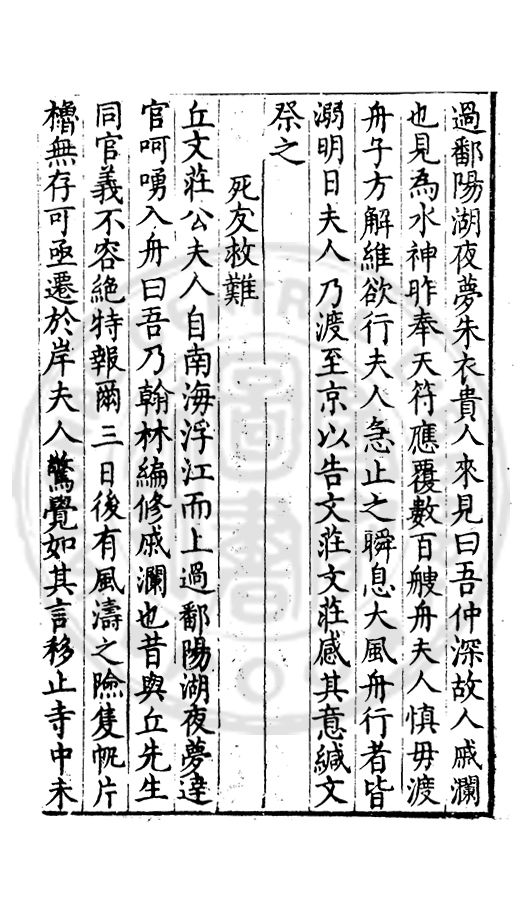 過鄱陽湖夜夢朱衣貴人來見曰吾仲深故人戚瀾
也見為水神昨奉天符應覆數百艘舟夫人慎毋渡
舟子方解維欲行夫人急止之瞬息大風舟行者皆
溺明日夫人乃渡至京以告文莊文莊感其意緘文
祭之
死友救難
丘文莊公夫人自南海浮江而上過鄱陽湖夜夢達
官呵喝入舟曰吾乃翰林編修戚瀾也昔與丘先生
同官義不容絶特報爾三日後有風濤之險隻帆片
櫓無存可亟遷於岸夫人驚覺如其言移止寺中未